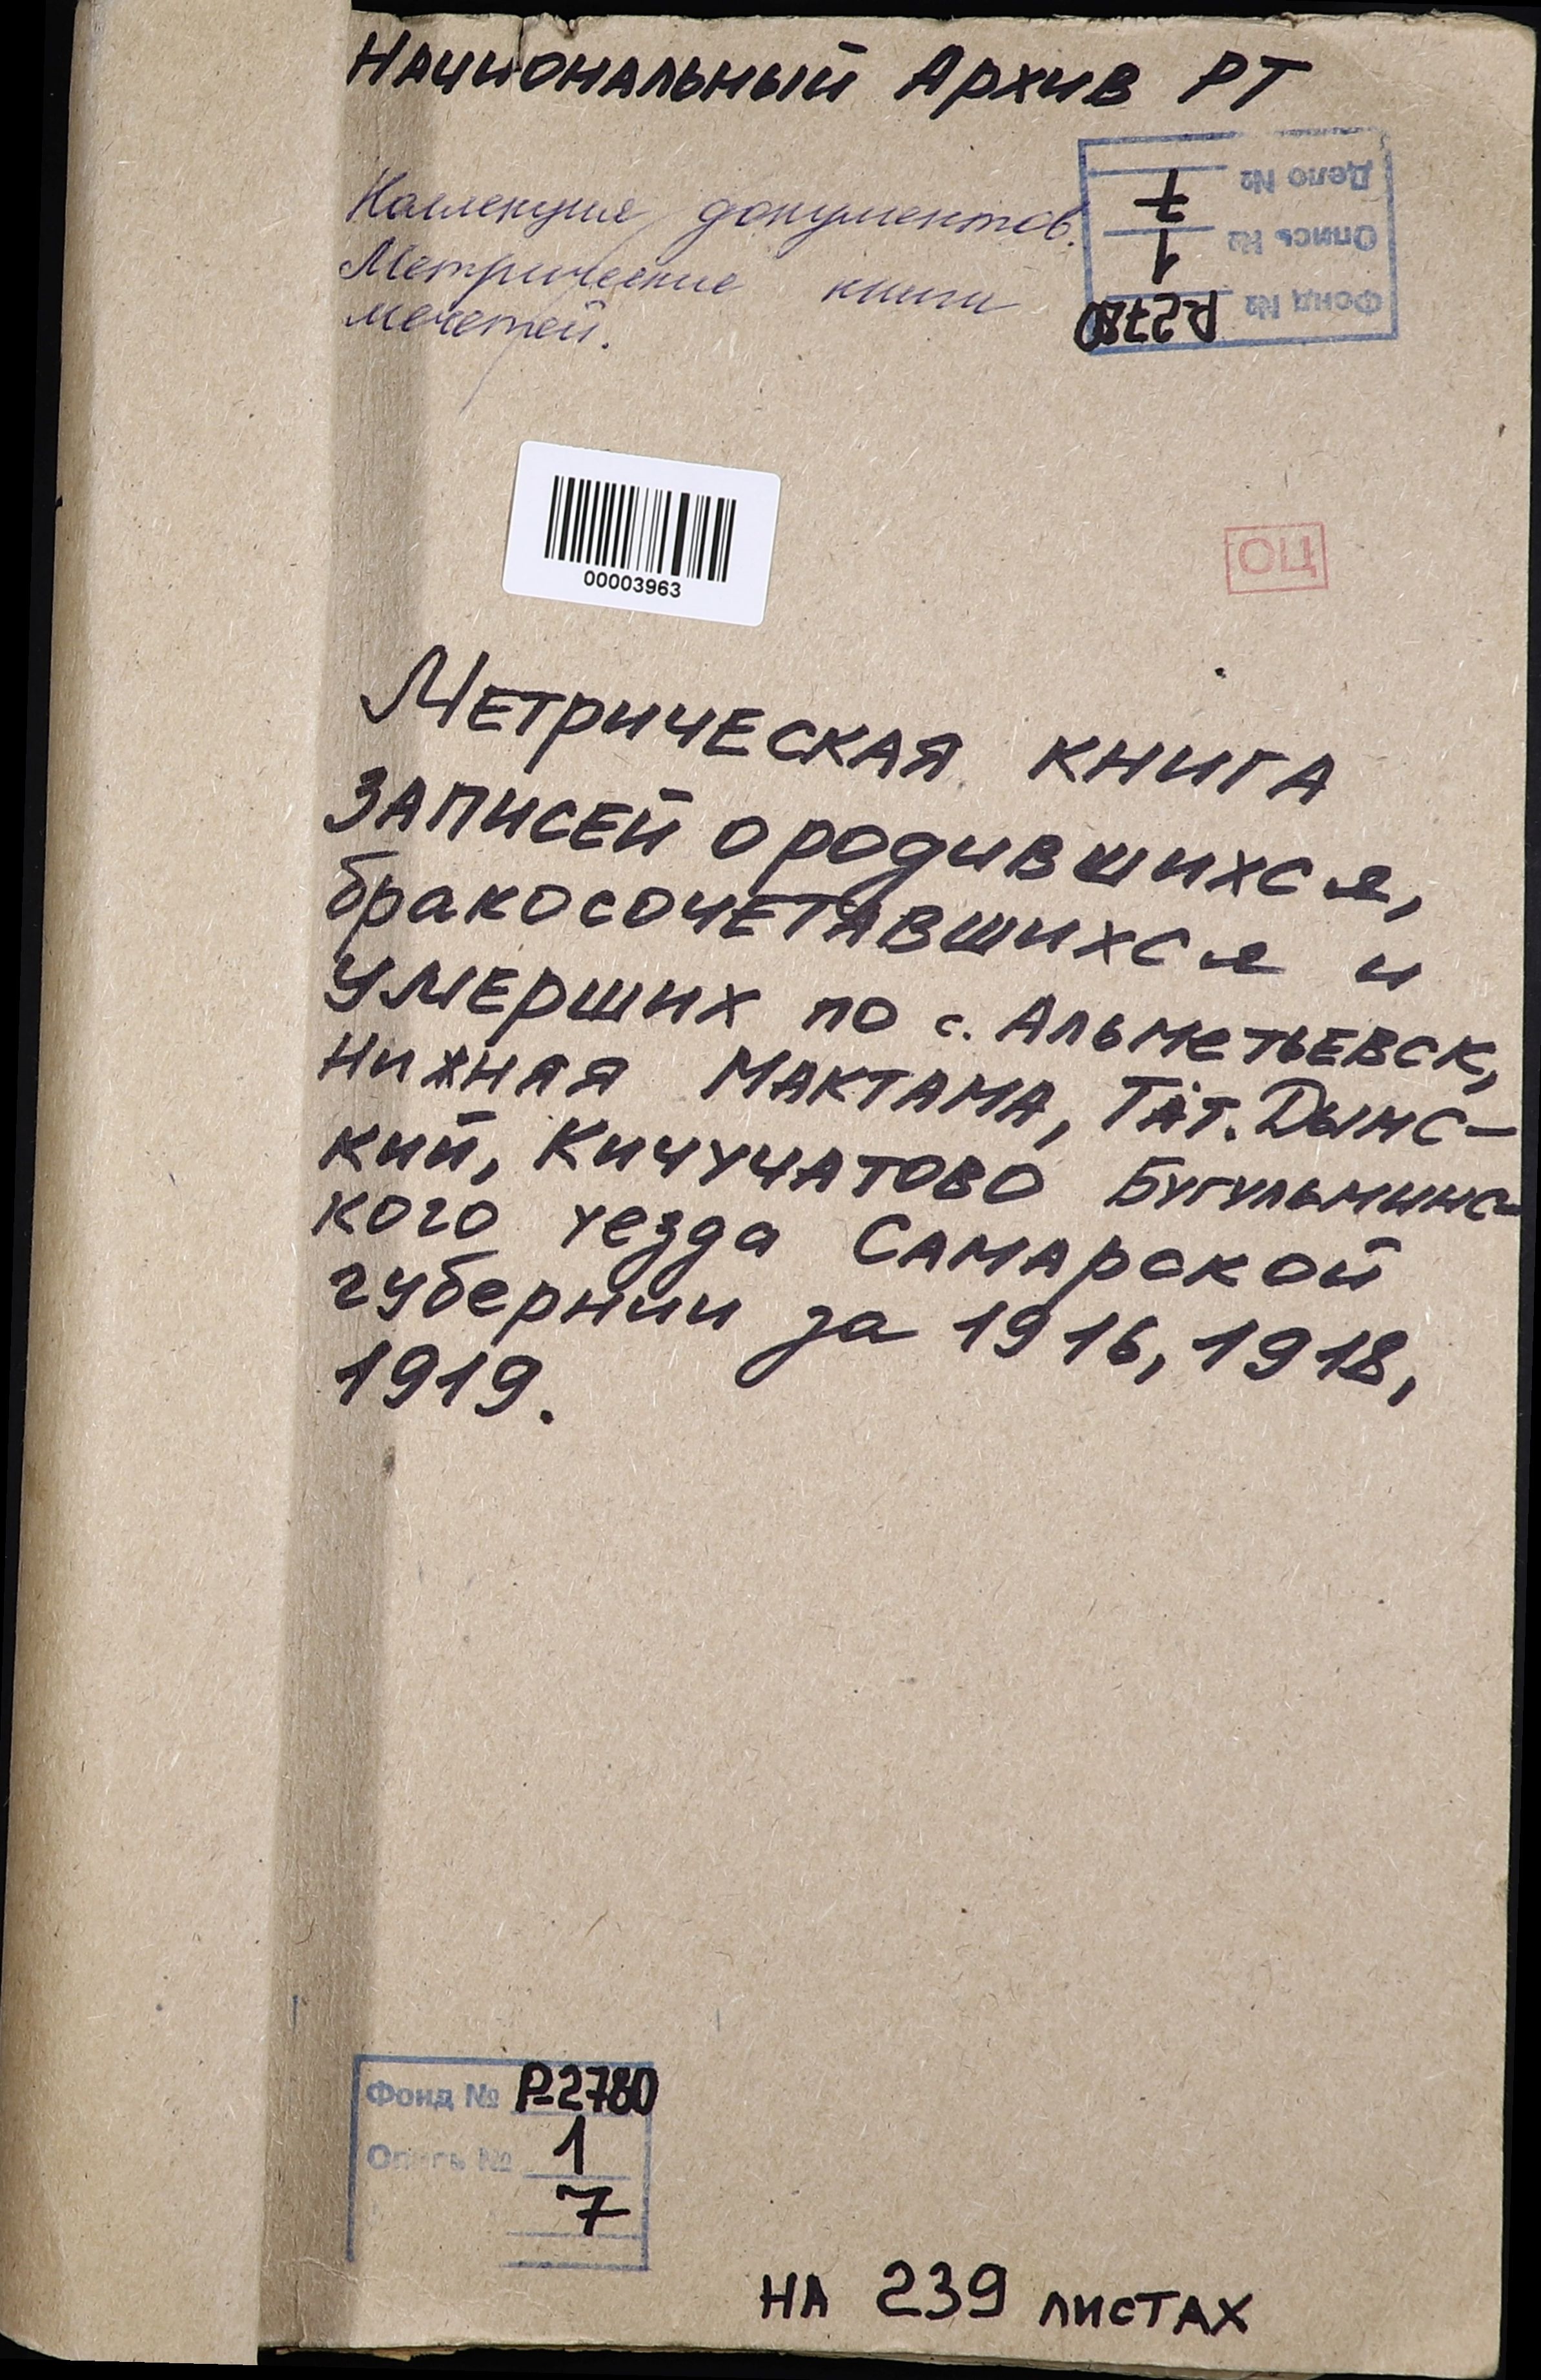 Национальный Архив РТ
Коллекция документов.
Метрические книги
мечетей.
Дело № 7
Опись № 1
Фонд № Р-2780
00003963
ОЦ
Метрическая книга
записей о родившихся,
бракосочетавшихся и
умерших по с. Альметьевск,
Нижняя Мактама, Тат. Дымс-
кий, Кичучатово Бугульминс-
кого уезда Самарской
губернии за 1916, 1918,
1919.
Фонд № Р-2780
Опись № 1
7
на 239 листах